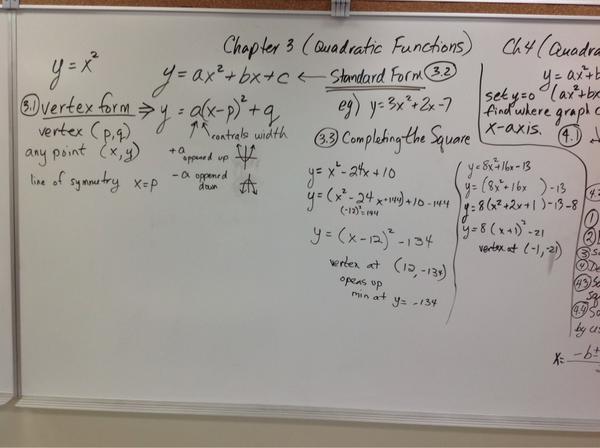 Chapter 3 (Quadratic Functions)
y = x²
y = ax² + bx + c ← Standard Form 3.2
3.1 vertex form ⇒ y = a(x-p)² + q
vertex (p,q)
controls width
any point (x,y)
+a opened up
line of symmetry x=p
-a opened down
eg) y = 3x² + 2x - 7
3.3 Completing the Square
y = x² - 24x + 10
y = (x² - 24x + 144) + 10 - 144
(-12)² = 144
y = (x - 12)² - 134
vertex at (12, -134)
opens up
min at y = -134
y = 8x² + 16x - 13
y = (8x² + 16x ) - 13
y = 8(x² + 2x + 1) - 13 - 8
y = 8(x + 1)² - 21
vertex at (-1, -21)
Ch 4 (Quadra
y = ax² + b
set y=0 (ax² + bx
find where graph c
x-axis.
4.1
4.2
1
2
3 S
4 De
4.3 So
Squ
4.4 So
by us
x = -b ±